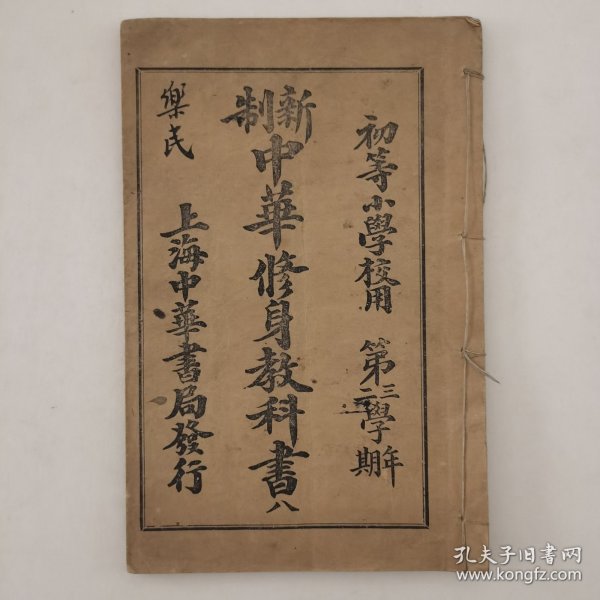 初等小學校用 第三學年
第二學期
新制中華修身教科書 八
上海中華書局發行
樂民
孔夫子旧书网
www.kongfz.com